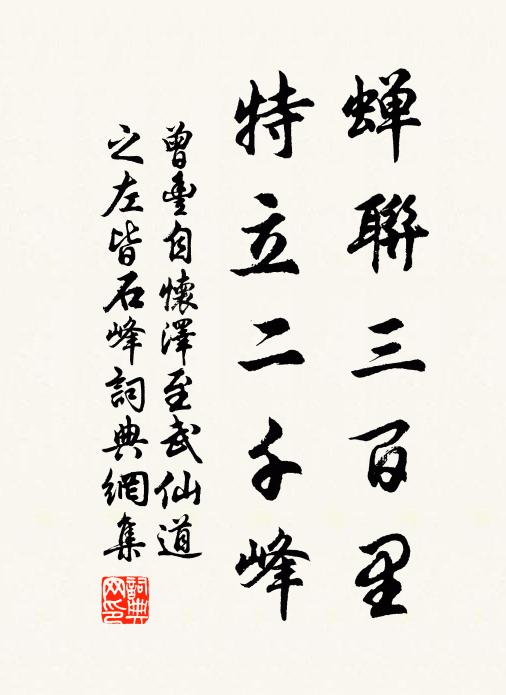 蝉聯三百里
特立二千峰
曾豊自懷澤至武仙道
之左皆石峰詞典網集
詞典
网印